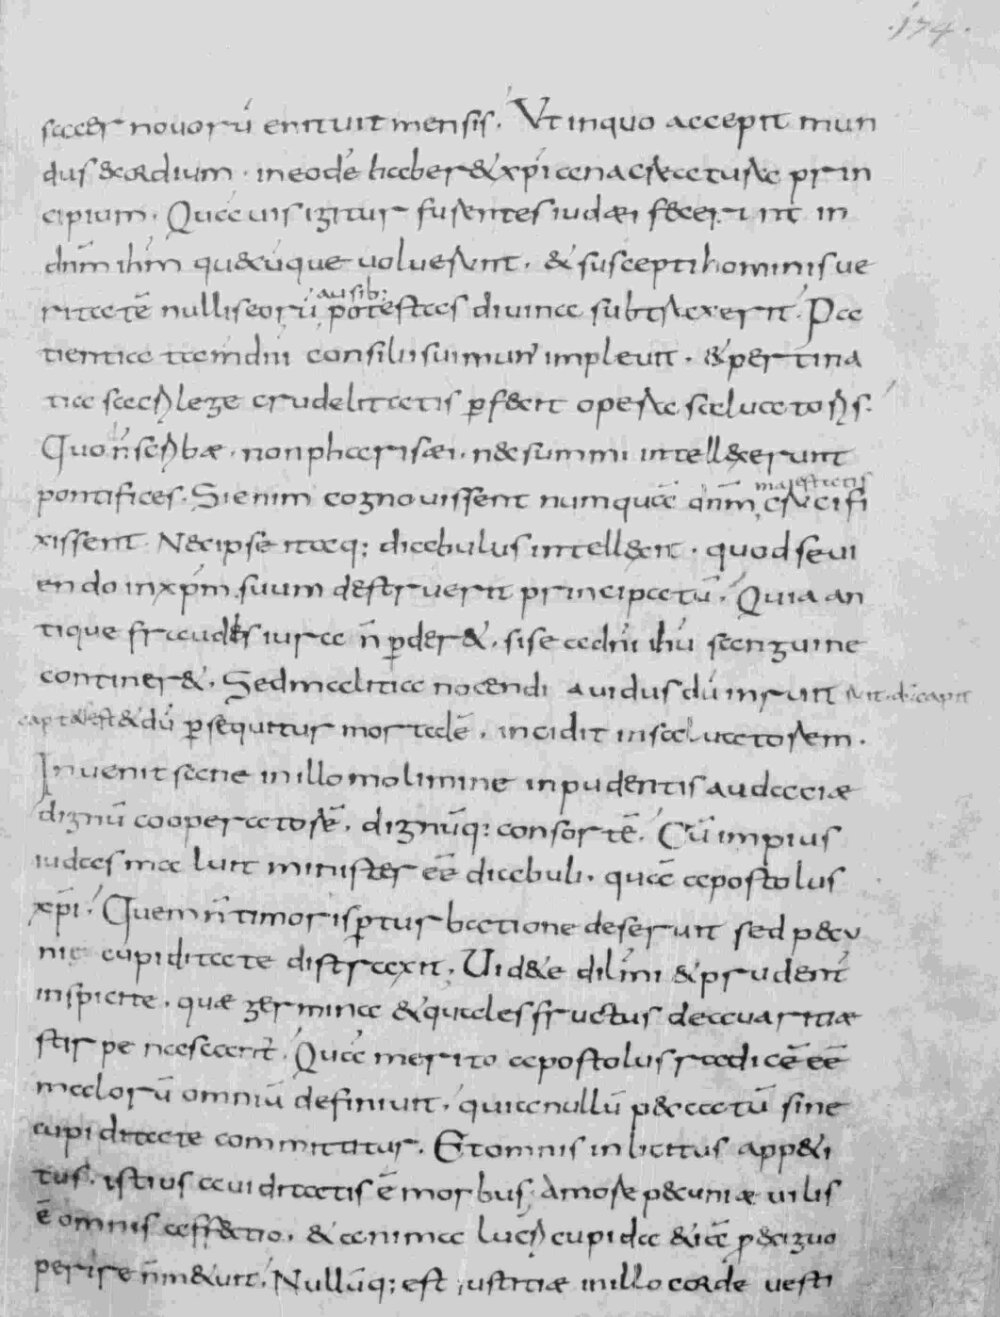 ·174·
sacer novorũ enituit mensis. Ut inquo accepit mun
dus &ordium. ineodẽ haber& xp̃iana creatura prin
cipium. Quãuis igitur furentes iudæi fecerint in
dnm̃ ihm̃ qu&cũque voluerunt. & suscepti hominis ve
ausib;
ritatẽ nulliseorũ potestas divina subtraxerit. Pa
tientia tam̃ dni consilii sui mun' implevit. & pertina
tia sacri lege crudelitatis p̱fecit opera salvatoris.
Quoñ scribæ. non pharisæi. nec summi intell&erunt
pontifices. Si enim cognovissent numquã dnm̃ crucifi
majestatis
xissent. Nec ipse itaq; diabulus intell&it. quod sevi
endo in xp̃m suum destruerit principatũ. Quia an
tique fraudes iura ñ p̱der&. si se a dni ihũ sanguine
contineret. Sed malitia nocendi avidus dũ inruit ruit. dũ capit
capt& est & dũ p̱sequitur mortalẽ. incidit in salvatorem.
Invenit sane in illo molimine inpudentis audaciæ
dignũ cooperatorẽ. dignũq; consortẽ. Cũ impius
iudas maluit minister eẽ diabuli. quã apostolus
xp̃i. Quem ñ timoris p̱turbatione deseruit sed pecu
nię cupiditate distraxit. Uid&e dil̃mi & prudent'
inspicite. quæ germina & quales fructus de avaritiæ
stirpe nascant̃. Quã merito apostolus radicẽ eẽ
malorũ omniũ definivit. quia nullũ peccatũ sine
cupiditate committitur. Et omnis inlicitus app&i
tus. istius aviditatis ẽ morbus. Amore pecuniæ vilis
ẽ omnis affectio. & anima lucri cupida &iã p̱ exiguo
perire ñ m&uit. Nullũq; est iustitiæ in illo corde vesti